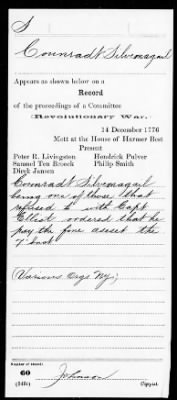 S
Counradt Silvernagail
Appears as shown below on a
Record
of the proceedings of a Committee
Revolutionary War.
14 December 1776
Mett at the House of Harmer Best
Present
Peter R. Livingston Hendrick Pulver
Samuel Ten Broeck Philip Smith
Dirck Jansen
Counradt Silvernagail
being one of those that
refused to with Capt
Ellest ordered that he
pay the fine
(Various Orgs NY;)
Number of record:
60
Johnson
Copyist.